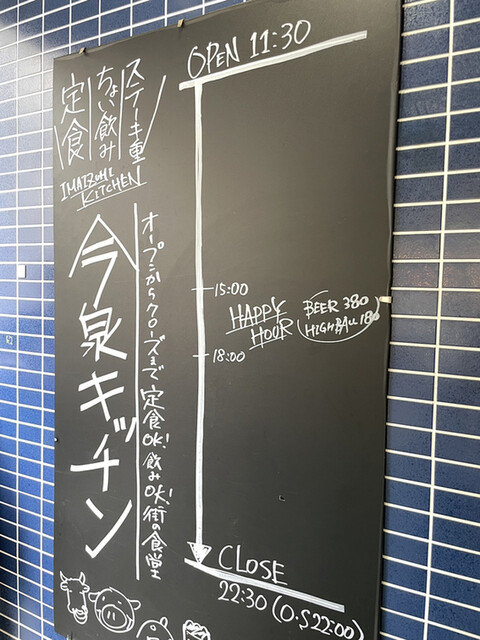 ステーキ重
ちょい飲み
定食
IMAIZUMI
KITCHEN
今泉キッチン
オープンからクローズまで定食OK!飲みOK!街の食堂
OPEN 11:30
15:00
HAPPY
HOUR
BEER 380
HIGHBALL 180
18:00
CLOSE
22:30 (O.S 22:00)